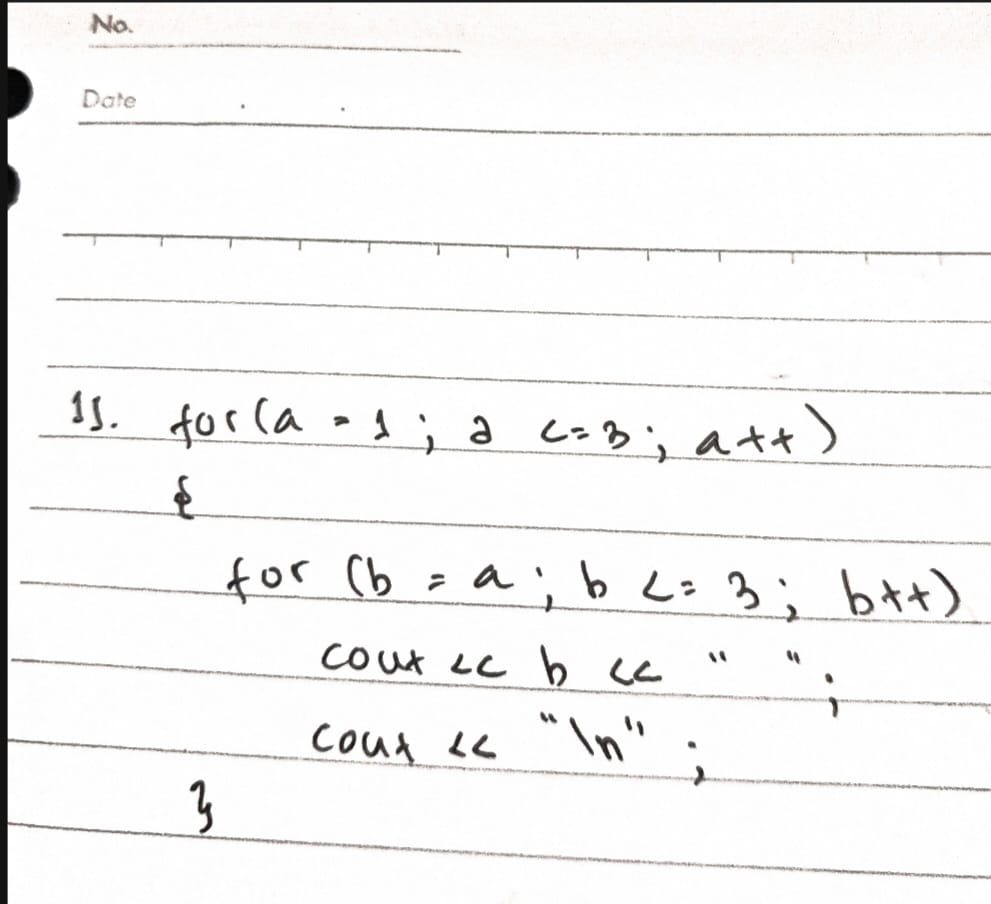 No.
Date
11. for(a = 1; a <= 3; a++)
{
for (b = a; b <= 3; b++)
cout << b << " ";
cout << "\n";
}